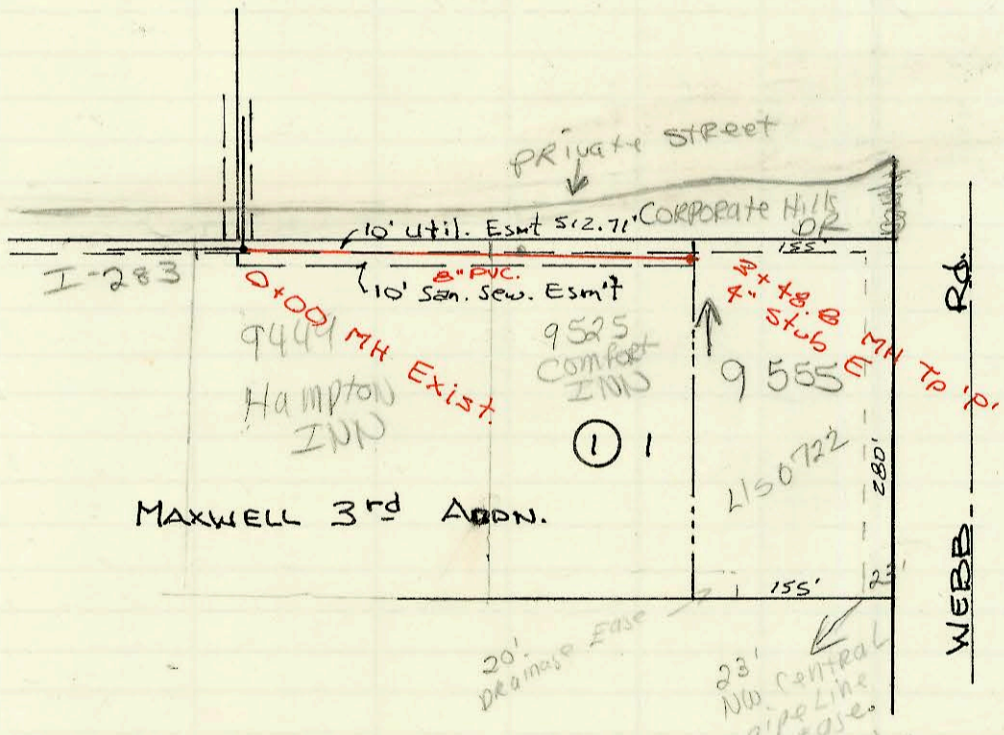 PRivate STReet
10' Util. Esmt 512.71'
CORPORATE Hills
DR
155'
I-283
8" PVC.
10' San. Sew. Esm't
0+00 MH Exist.
4" Stub E
MH
9449
Hampton
INN
9525
Comfort
INN
9555
① 1
L150722
280'
MAXWELL 3rd ADDN.
155'
20'
DRainage Ease
23'
NW. CENTRAL
pipe Line
ease.
WEBB Rd.